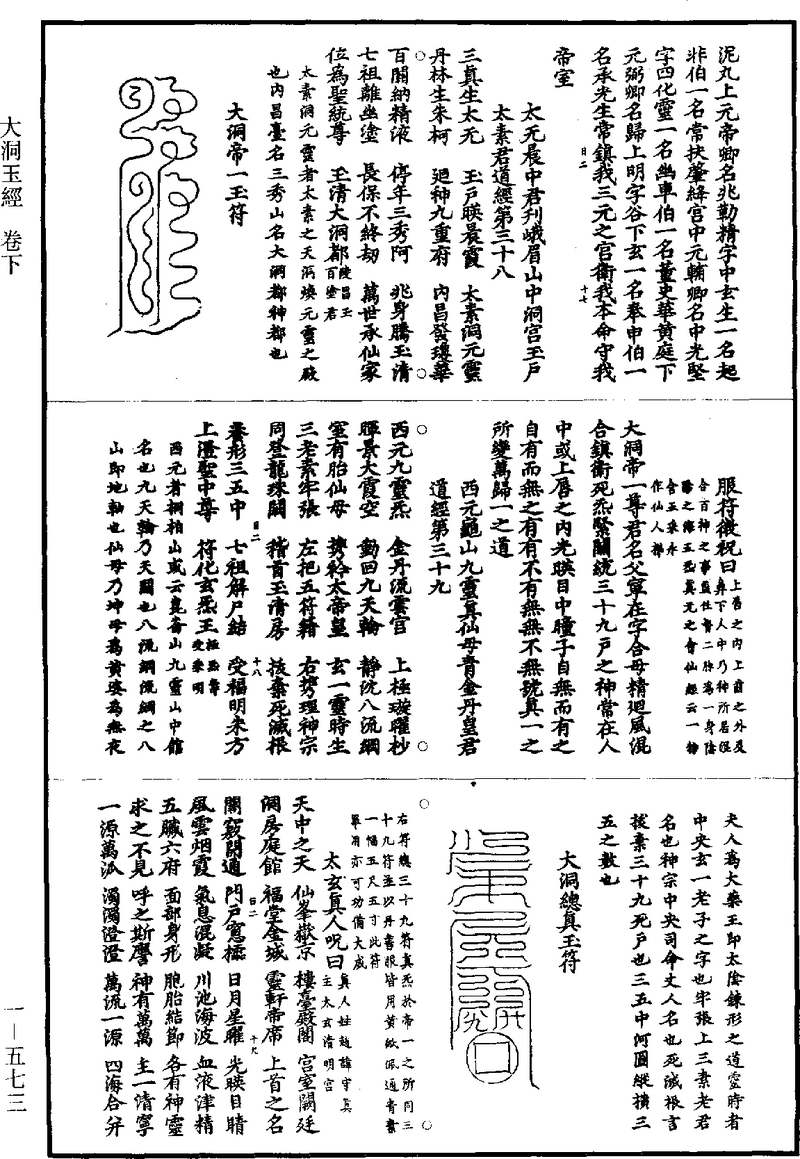 大洞玉經 卷下
一—五七三
泥丸上元帝卿名兆勒精字中玄生一名起
非伯一名常扶董絳宫中元輔卿名中光堅
字四化靈一名幽車伯一名董史華黄庭下
元弼卿名歸上明字谷下玄一名奉申伯一
名承光生常鎮我三元之宫衛我本命守我
帝室
太无晨中君刋峨眉山中洞宫玉户
太素君道經第三十八
三真生太无 玉户暎晨霞 太素洞元靈
丹林生朱柯 迴神九重府 内昌發瓊華
百關納精液 停年三秀阿 兆身騰玉清
七祖離幽塗 長保不終劫 萬世承仙家
位爲聖統尊 玉清大洞都
太素洞元靈者太素之天洞煥元靈之殿
也内昌臺名三秀山名大洞都神都也
大洞帝一玉符
服符微祝曰
大洞帝一尊君名父寧在字合母精迴風混
合鎮衛死炁緊關統三十九户之神常在人
中或上唇之内光暎目中瞳子自無而有之
自有而無之有有不有無無不無號真一之
所變萬歸一之道
西元龜山九靈真仙母青金丹皇君
道經第三十九
西元九靈炁 金丹流雲宫 上極璇曜杪
暉景大霞空 動回九天輪 静沈八流綱
室有胎仙母 携衿太帝皇 玄一靈時生
三老素牢張 左把五符籍 右携理神宗
同登龍珠闕 稽首玉清房 拔棄死滅根
養形三五中 七祖解尸結 受福明朱方
上溍聖中尊 符化玄炁王
西元者桐柏山或云崑崙山九靈山中館
名也九天輪乃天關也八流綱流綱之八
山即地軸也仙母乃坤母爲黄婆爲無夜
夫人爲大藥王即太陰鍊形之道靈時者
中央玄一老子之字也牢張上三素老君
名也神宗中央司命丈人名也死滅根言
拔棄三十九死户也三五中河圖縱横三
五之數也
大洞總真玉符
右符總三十九符真炁於帝一之所同三
十九符並以丹書服皆用黄紙佩通青素
一幅五尺五寸此符
單消亦可功備大成
太玄真人呪曰
真人姓趙諱守真
主太玄清明宫
天中之天 仙峯嶽京 樓臺殿閣 宫室闕廷
洞房庭館 福堂金城 靈軒帝席 上首之名
關竅開通 門户窓櫺 日月星曜 光暎目睛
風雲烟霞 氣息混凝 川池海波 血液津精
五臟六府 面部身形 胞胎結節 各有神靈
求之不見 呼之斯譍 神有萬萬 主一清寧
一源萬派 濁濁澄澄 萬流一源 四海合并